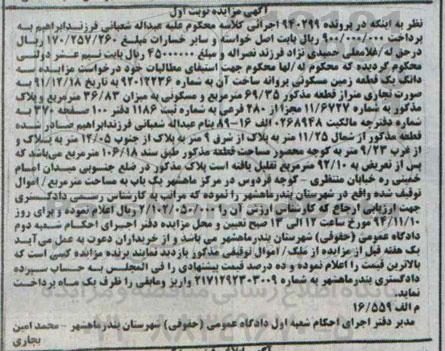 آگهی مزایده نوبت اول
نظر به اینکه در پرونده ۹۴۰۲۹۹ اجرائی کلاسه محکوم علیه عبداله شعبانی فرزندابراهیم به
پرداخت ۹۰۰/۰۰۰/۰۰۰ ریال بابت اصل خواسته و سایر خسارات مبلغ ۱۷۰/۲۵۷/۲۶۰ ریال
درحق له/غلامعلی حمیدی نژاد فرزند نصراله و مبلغ ۴۵۰۰۰۰۰۰ ریال بابت نیم عشر دولتی
محکوم گردیده که محکوم له/لها محکوم جهت استیفای مطالبات خود درخواست مزایده سه
دانگ یک قطعه زمین مسکونی پروانه ساخت آن به شماره ۹۲۰۱۲۲۳۶ به تاریخ ۹۱/۱۲/۱۸ به
صورت تجاری متراژ قطعه مذکور ۶۹/۳۵ مترمربع و مسکونی به میزان ۳۶/۸۳ مترمربع و پلاک
مذکور به شماره ۱۱/۶۷۲۷ مجزا از ۲۸۰ فرعی به شماره ثبت ۱۱۸۶ دفتر ۱۰ صفحه ۳۷۰ به
شماره دفترچه مالکیت ۰۲۶۸۹۴۸ الف ۱۶-۸۹ بنام عبداله شعبانی فرزندابراهیم صادر شده
قطعه مذکور از شمال ۱۱/۲۵ متر به پلاک از شرق ۹ متر به پلاک از جنوب ۱۲/۰۵ متر به پلاک و
از غرب ۹/۲۳ متر به کوچه محصور مساحت قطعه مذکور طبق سند ۱۰۶/۱۸ مترمربع می‌باشد که
پس از تعریض به ۹۲/۱۰ مترمربع تقلیل یافته است پلاک مذکور در ضلع جنوبی میدان امام
خمینی ره خیابان منتظری - کوچه فردوس در مرکز ماهشهر یک باب به مساحت مترمربع/اموال
توقیف شده واقع در شهرستان بندرماهشهر را نموده که مراتب به کارشناس رسمی دادگستری
جهت ارزیابی ارجاع که کارشناس ارزش آن را ۲/۱۰۲/۰۵۰/۰۰۰ ریال اعلام نموده و برای روز
۹۴/۱۱/۱۰ مورخ ساعت ۱۲ الی ۱۳ صبح تعیین و محل مزایده دفتر اجرای احکام شعبه دوم
دادگاه عمومی (حقوقی) شهرستان بندرماهشهر می باشد و از خریداران دعوت به عمل می‌آید
یک هفته قبل از مزایده از ملک/ اموال توقیفی مذکور بازدید نمایند برنده مزایده کسی است که
بالاترین قیمت را اعلام نموده و ده درصد قیمت پیشنهادی را فی المجلس به حساب سپرده
دادگستری بندرماهشهر به شماره ۲۱۷۱۲۹۲۳۰۳۰۰۹ واریز ومابقی را ظرف یک ماه پرداخت
نماید.
م الف ۱۶/۵۵۹
مدیر دفتر اجرای احکام شعبه اول دادگاه عمومی (حقوقی) شهرستان بندرماهشهر - محمدامین
بجاری